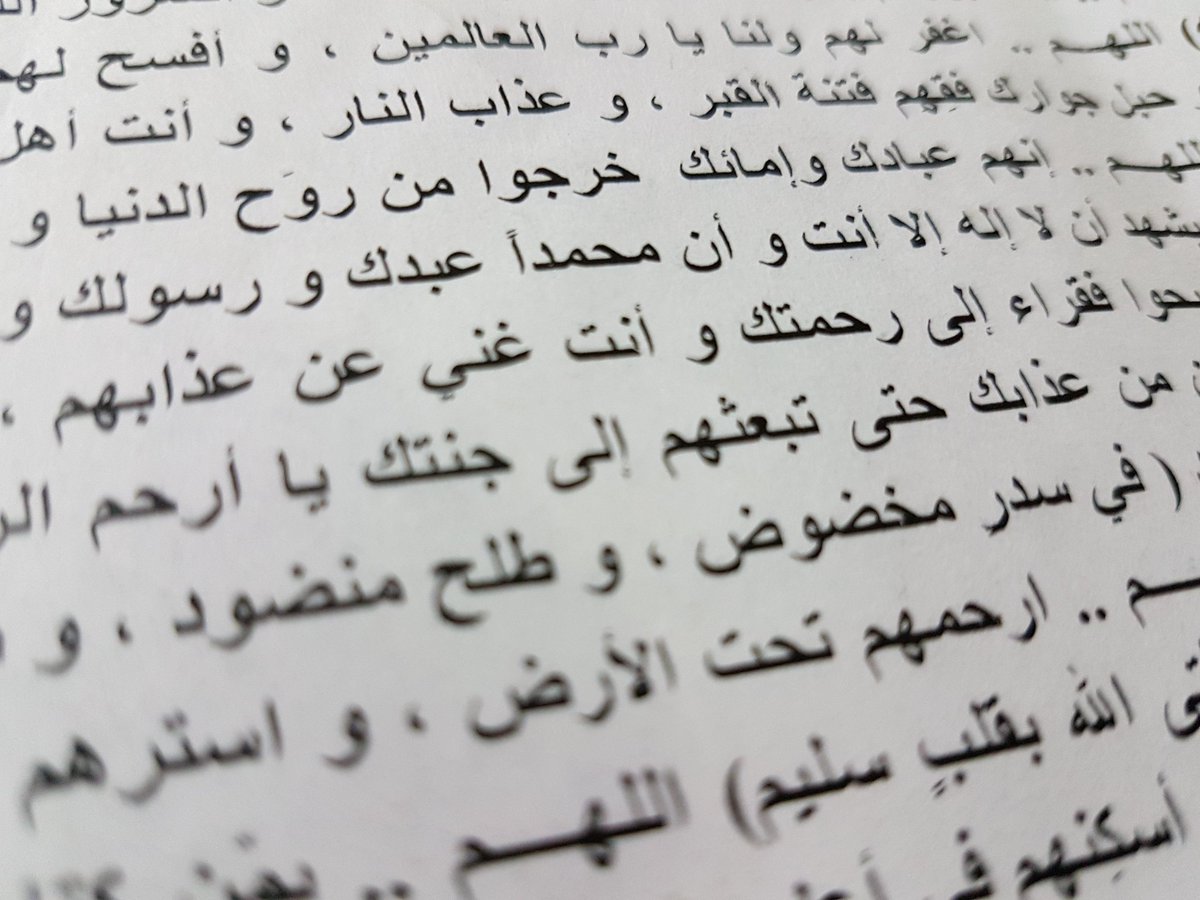 اللهـــم .. اغفر لهم ولنا يا رب العالمين ، و أفسح لهم
حبل جوارك فَقِهِم فتنة القبر ، و عذاب النار ، و أنت أهل
اللهـــم .. إنهم عبادك وإمائك خرجوا من روَح الدنيا و
يشهد أن لا إله إلا أنت و أن محمداً عبدك و رسولك و
فقراء إلى رحمتك و أنت غني عن عذابهم ،
من عذابك حتى تبعثهم إلى جنتك يا أرحم
( في سدر مخضوض ، و طلح منضود ، و
.. ارحمهم تحت الأرض ، و استرهم
الله بقلبٍ سليم) اللهـــم ..
أسكِنهم في